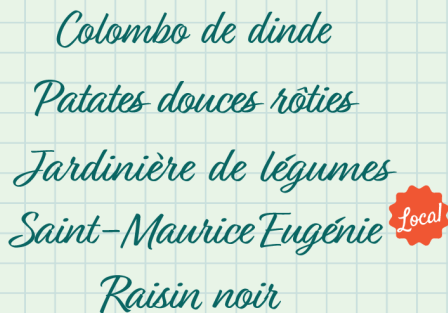 Colombo de dinde
Patates douces rôties
Jardinière de légumes
Saint-Maurice Eugénie
Local
Raisin noir